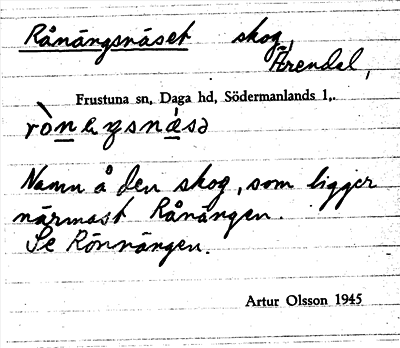 Rånängsnäset skog,
Ärendal,
Frustuna sn, Daga hd, Södermanlands l.,
Namn å den skog, som ligger
närmast Rånängen.
Se Rönnängen.
Artur Olsson 1945